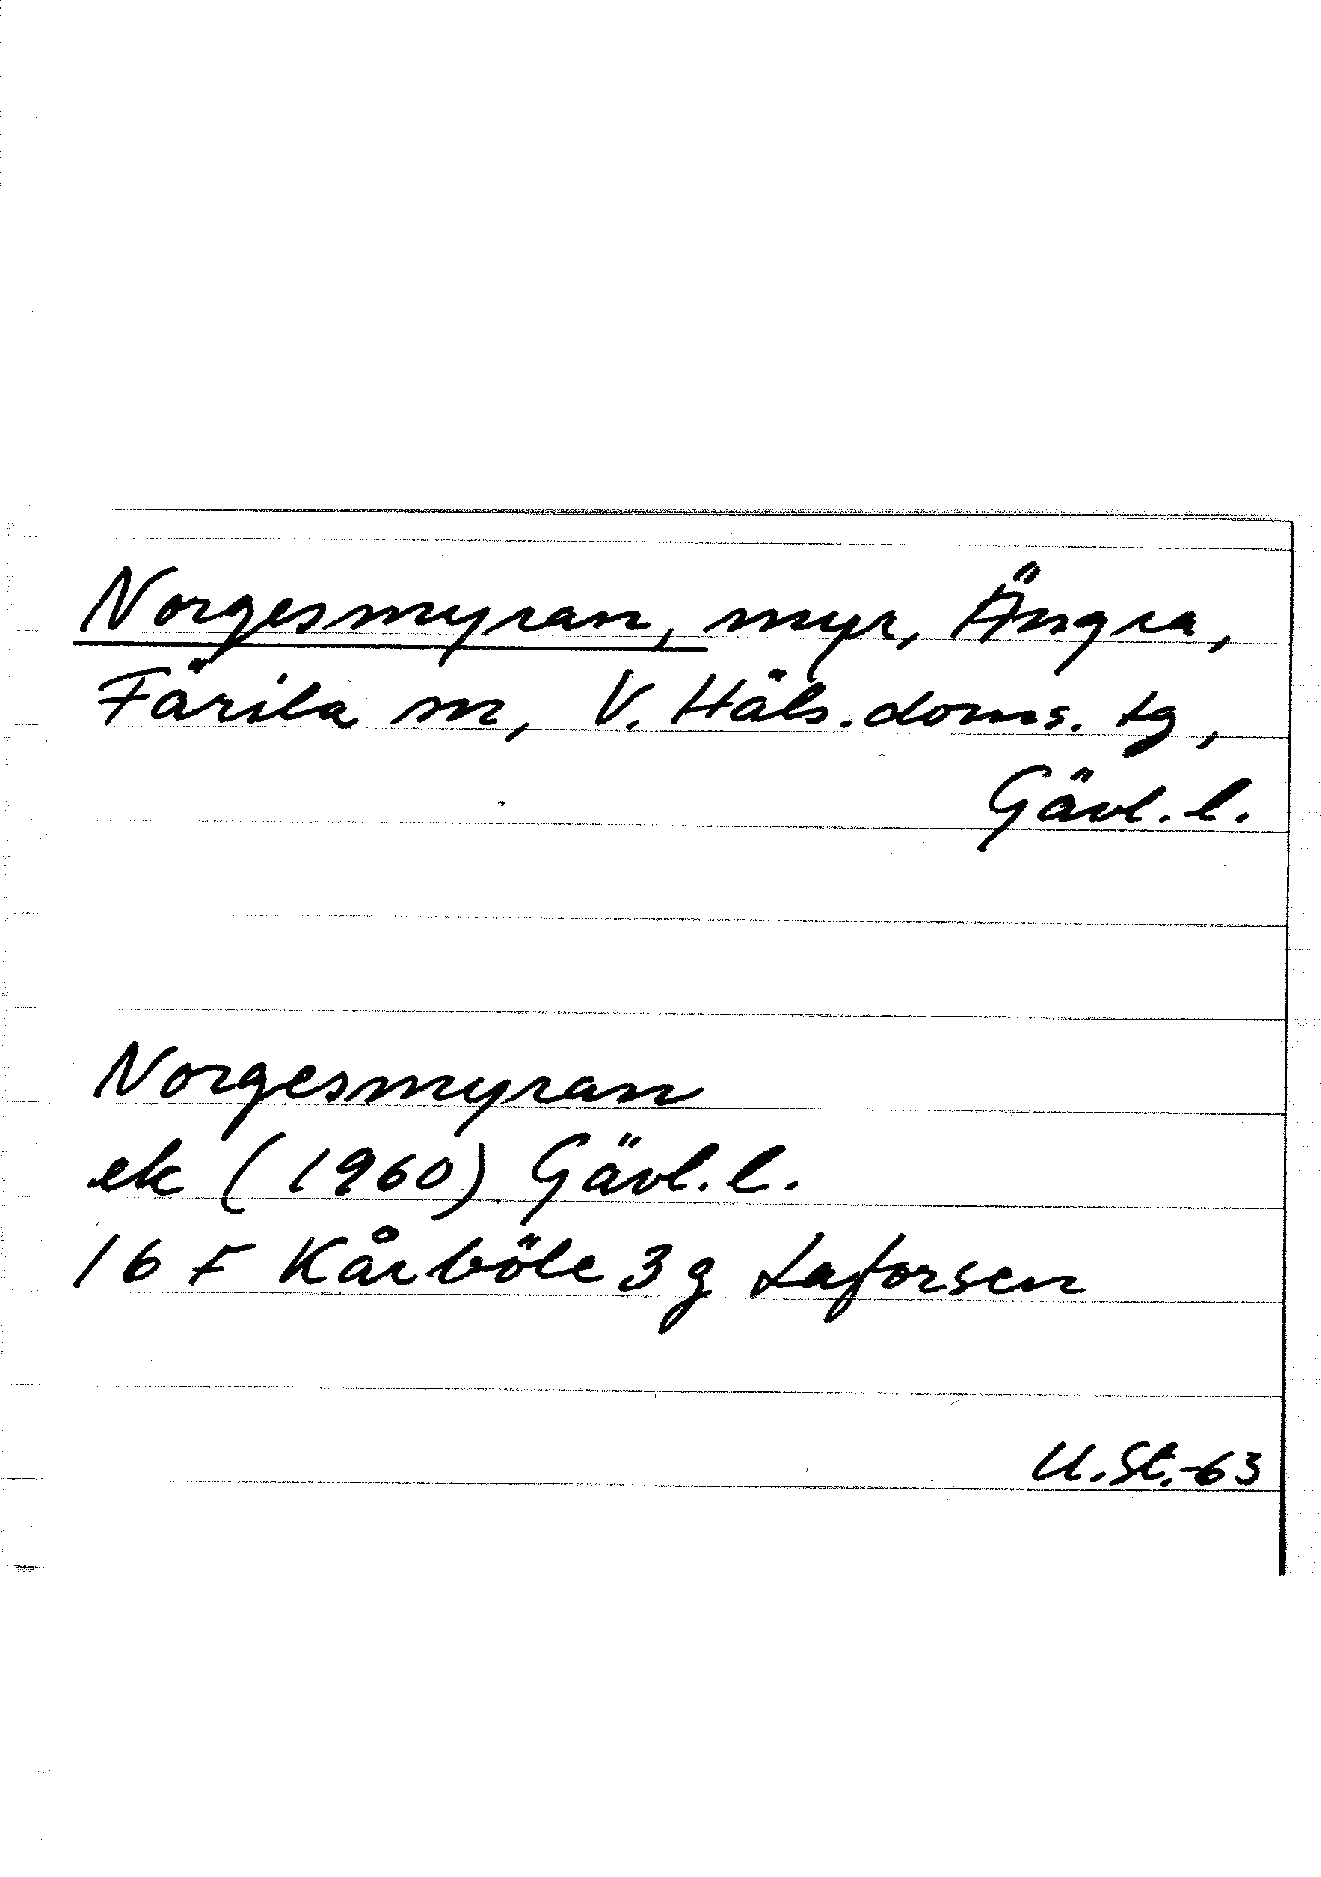 Norgesmyran, myr, Ängra,
Färila sn, V. Häls. doms. tg,
Gävl. l.
Norgesmyran
ek (1960) Gävl. l.
16 F Kårböle 3 g Laforsen
U. St. -63